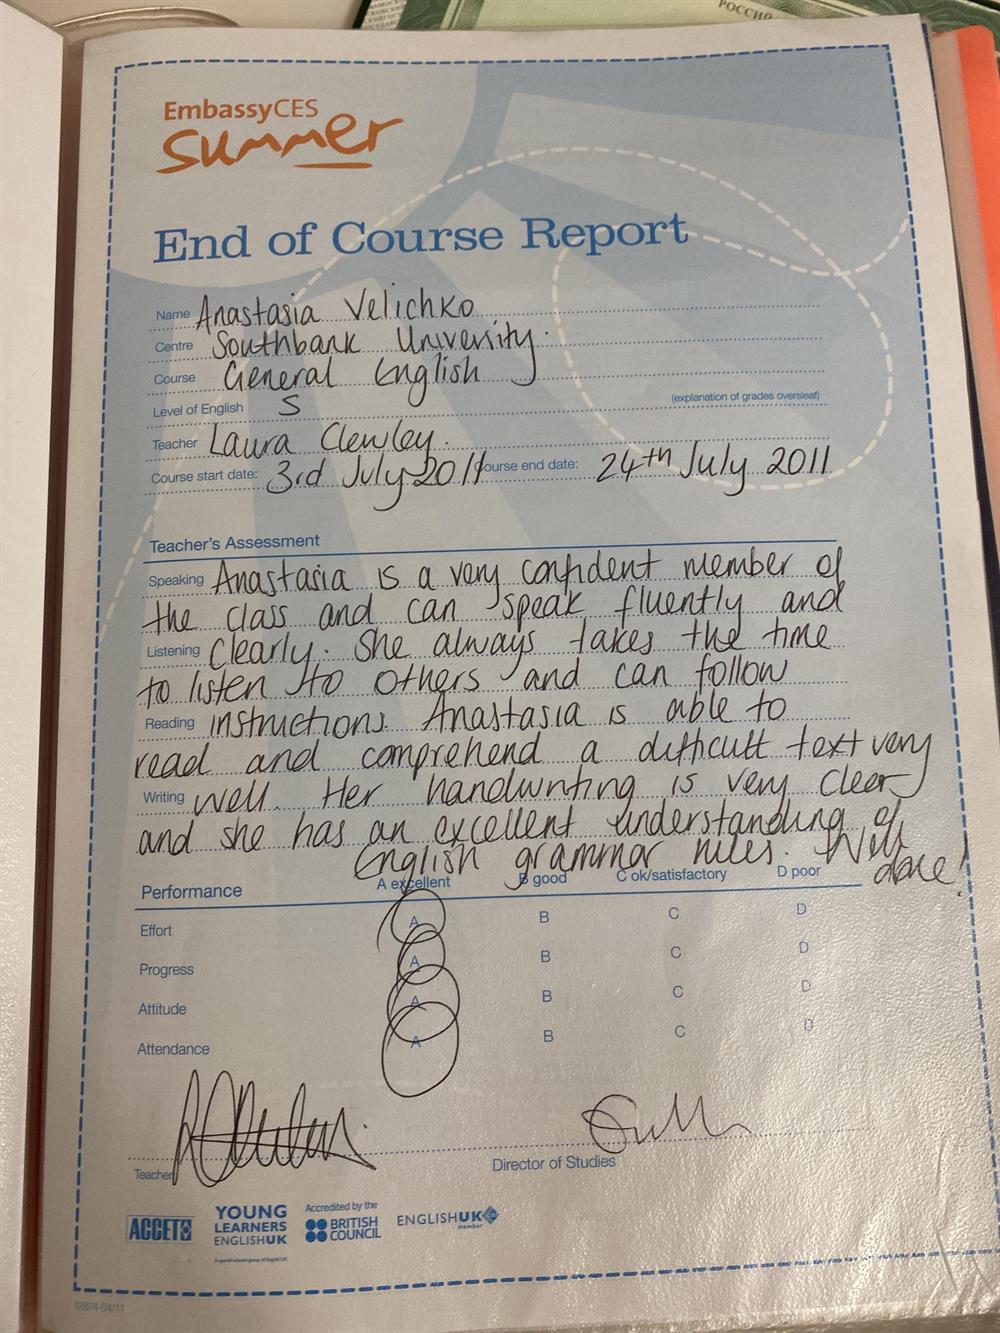 РОССИЙ
EmbassyCES
summer
End of Course Report
Name Anastasia Velichko
Centre Southbank University.
Course General English
Level of English 5 (explanation of grades overleaf)
Teacher Laura Clewley.
Course start date: 3rd July 2011 Course end date: 24th July 2011
Teacher's Assessment
Speaking Anastasia is a very confident member of
the class and can speak fluently and
Listening clearly. She always takes the time
to listen to others and can follow
Reading instructions. Anastasia is able to
read and comprehend a difficult text very
Writing well. Her handwriting is very clear
and she has an excellent understanding of
English grammar rules. Well done!
Performance A excellent B good C ok/satisfactory D poor
Effort A B C D
Progress A B C D
Attitude A B C D
Attendance A B C D
Teacher Director of Studies
ACCET
YOUNG LEARNERS ENGLISHUK
Accredited by the BRITISH COUNCIL
ENGLISHUK member
12074-04/11